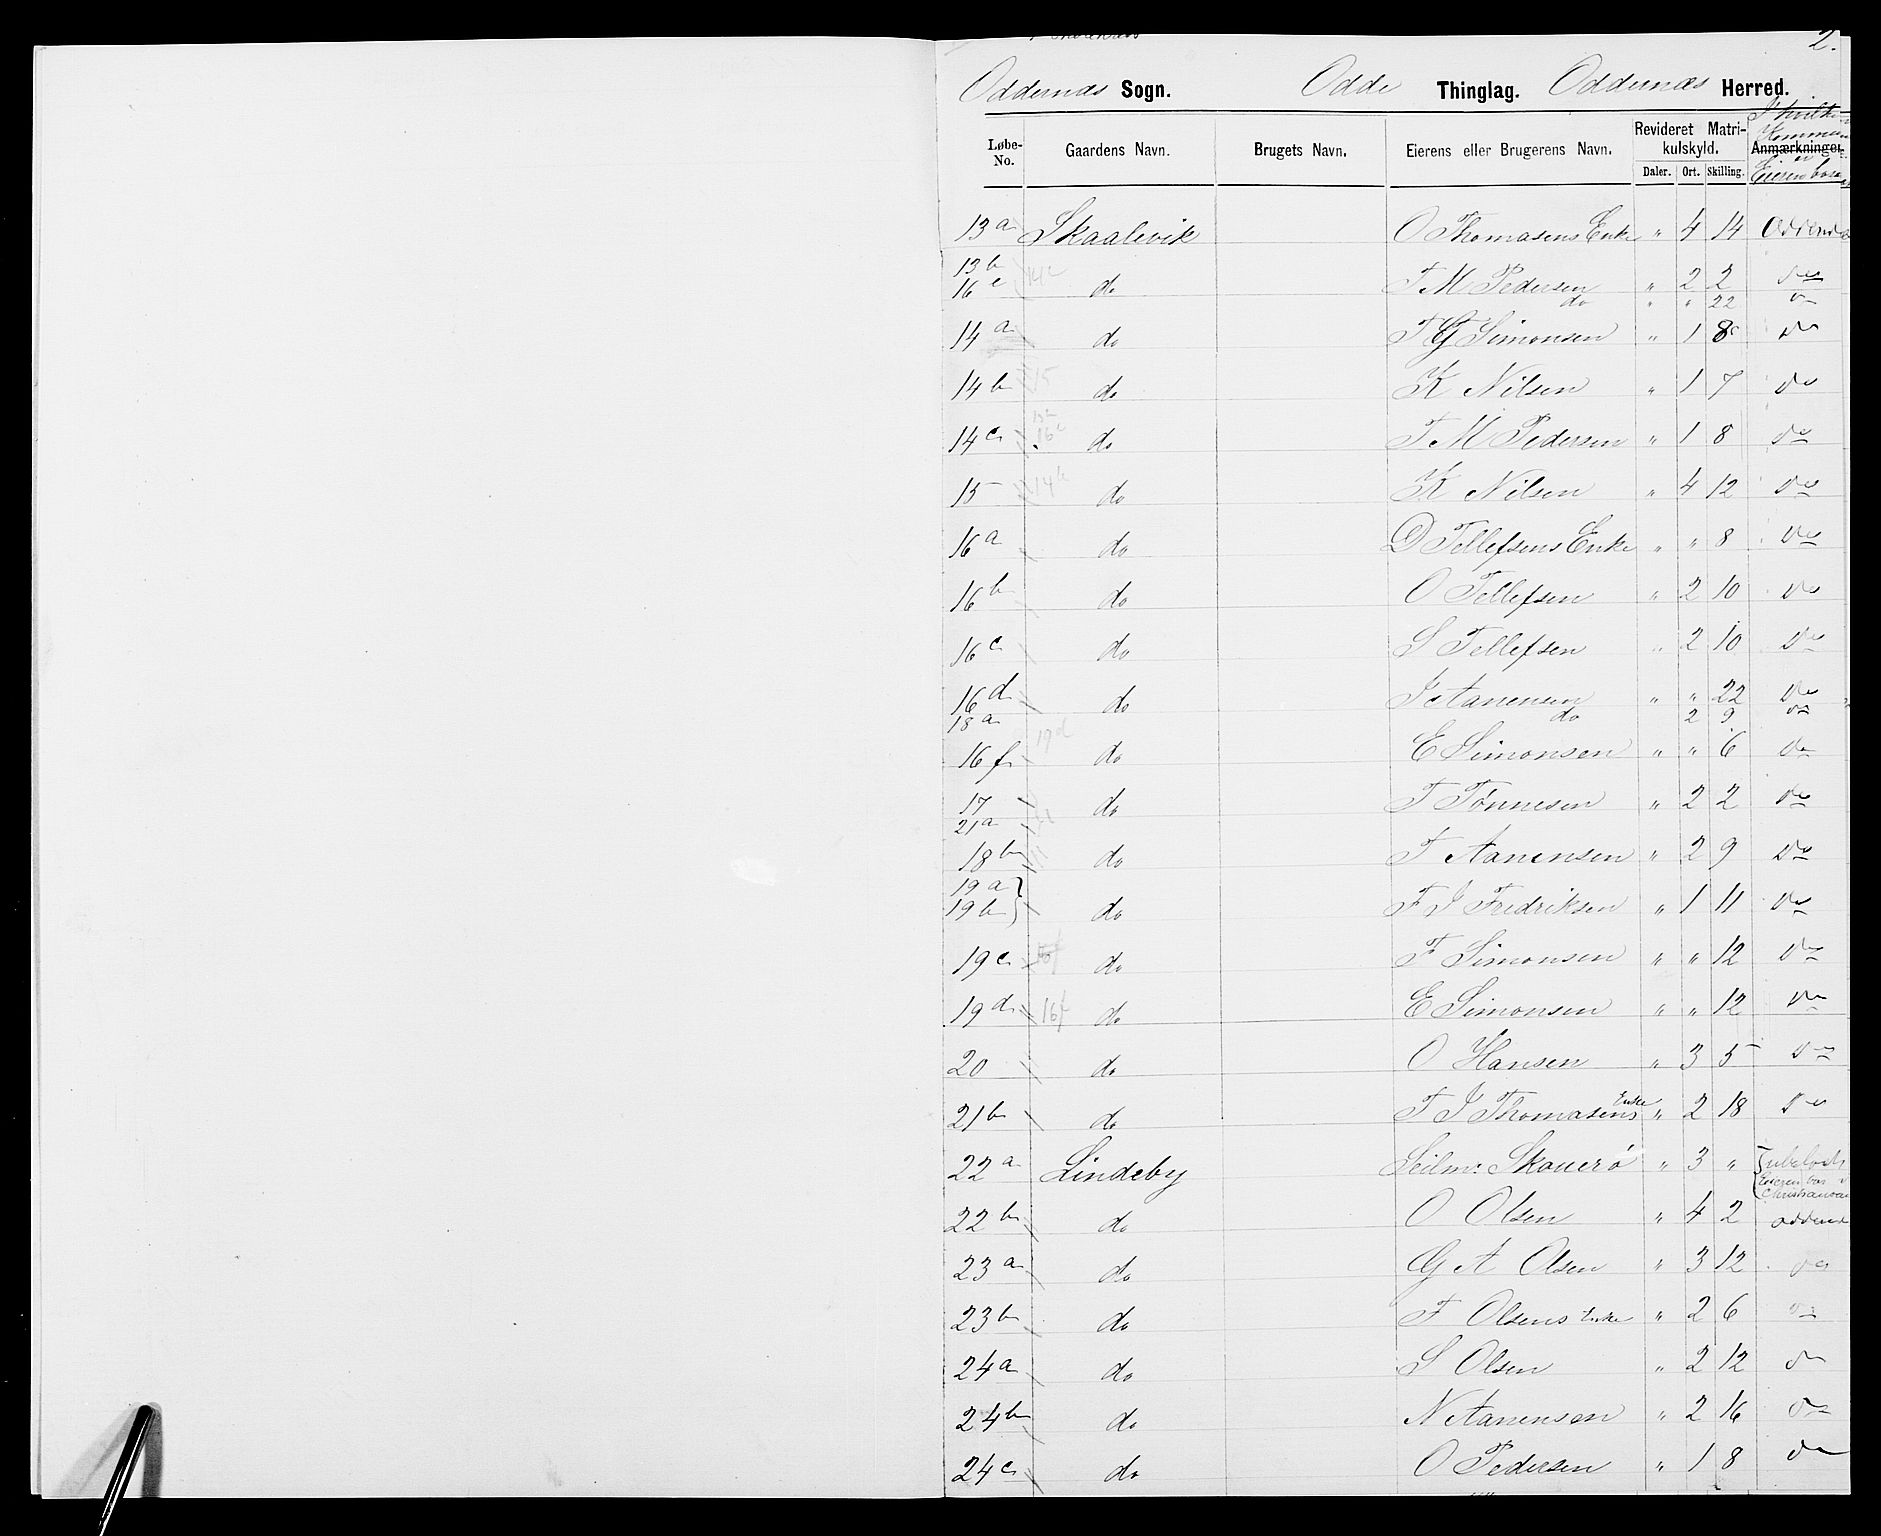 2.
Oddernæs Sogn. Odde Thinglag. Oddernæs Herred.
Løbe-No. Gaardens Navn. Brugets Navn. Eierens eller Brugerens Navn. Revideret Matrikulskyld. Daler. Ort. Skilling. Anmærkninger.
13a Skaalevik O Thomasens Enke " 4 14
13b
16e do T M Pedersen " 2 2 do
do " " 22 do
14a do T G Simonsen " 1 8 do
14b 15 do K Nilsen " 1 7 do
14c do T M Pedersen " 1 8 do
15 14b do K Nilsen " 4 12 do
16a do D Tellefsens Enke " " 8 do
16b do O Tellefsen " 2 10 do
16c do S Tellefsen " 2 10 do
16d do J Aanensen " " 22 do
18a do 2 9 do
16f 19d do E Simonsen " " 6 do
17 do T Tønnesen " 2 2 do
21a
18b do T Aanensen " 2 9 do
19a
19b do F J Fredriksen " 1 11 do
19c do F Simonsen " " 12 do
19d 16f do E Simonsen " " 12 do
20 do O Hansen " 3 5 do
21b do T J Thomasens Enke " 2 18 do
22a Lindeby Seilm: Skouerø " 3 "
Eieren bor i
22b do O Olsen " 4 2
23a do G A Olsen " 3 12 do
23b do F Olsens Enke " 2 6 do
24a do S Olsen " 2 12 do
24b do N Aanensen " 2 16 do
24c do O Pedersen " 1 8 do